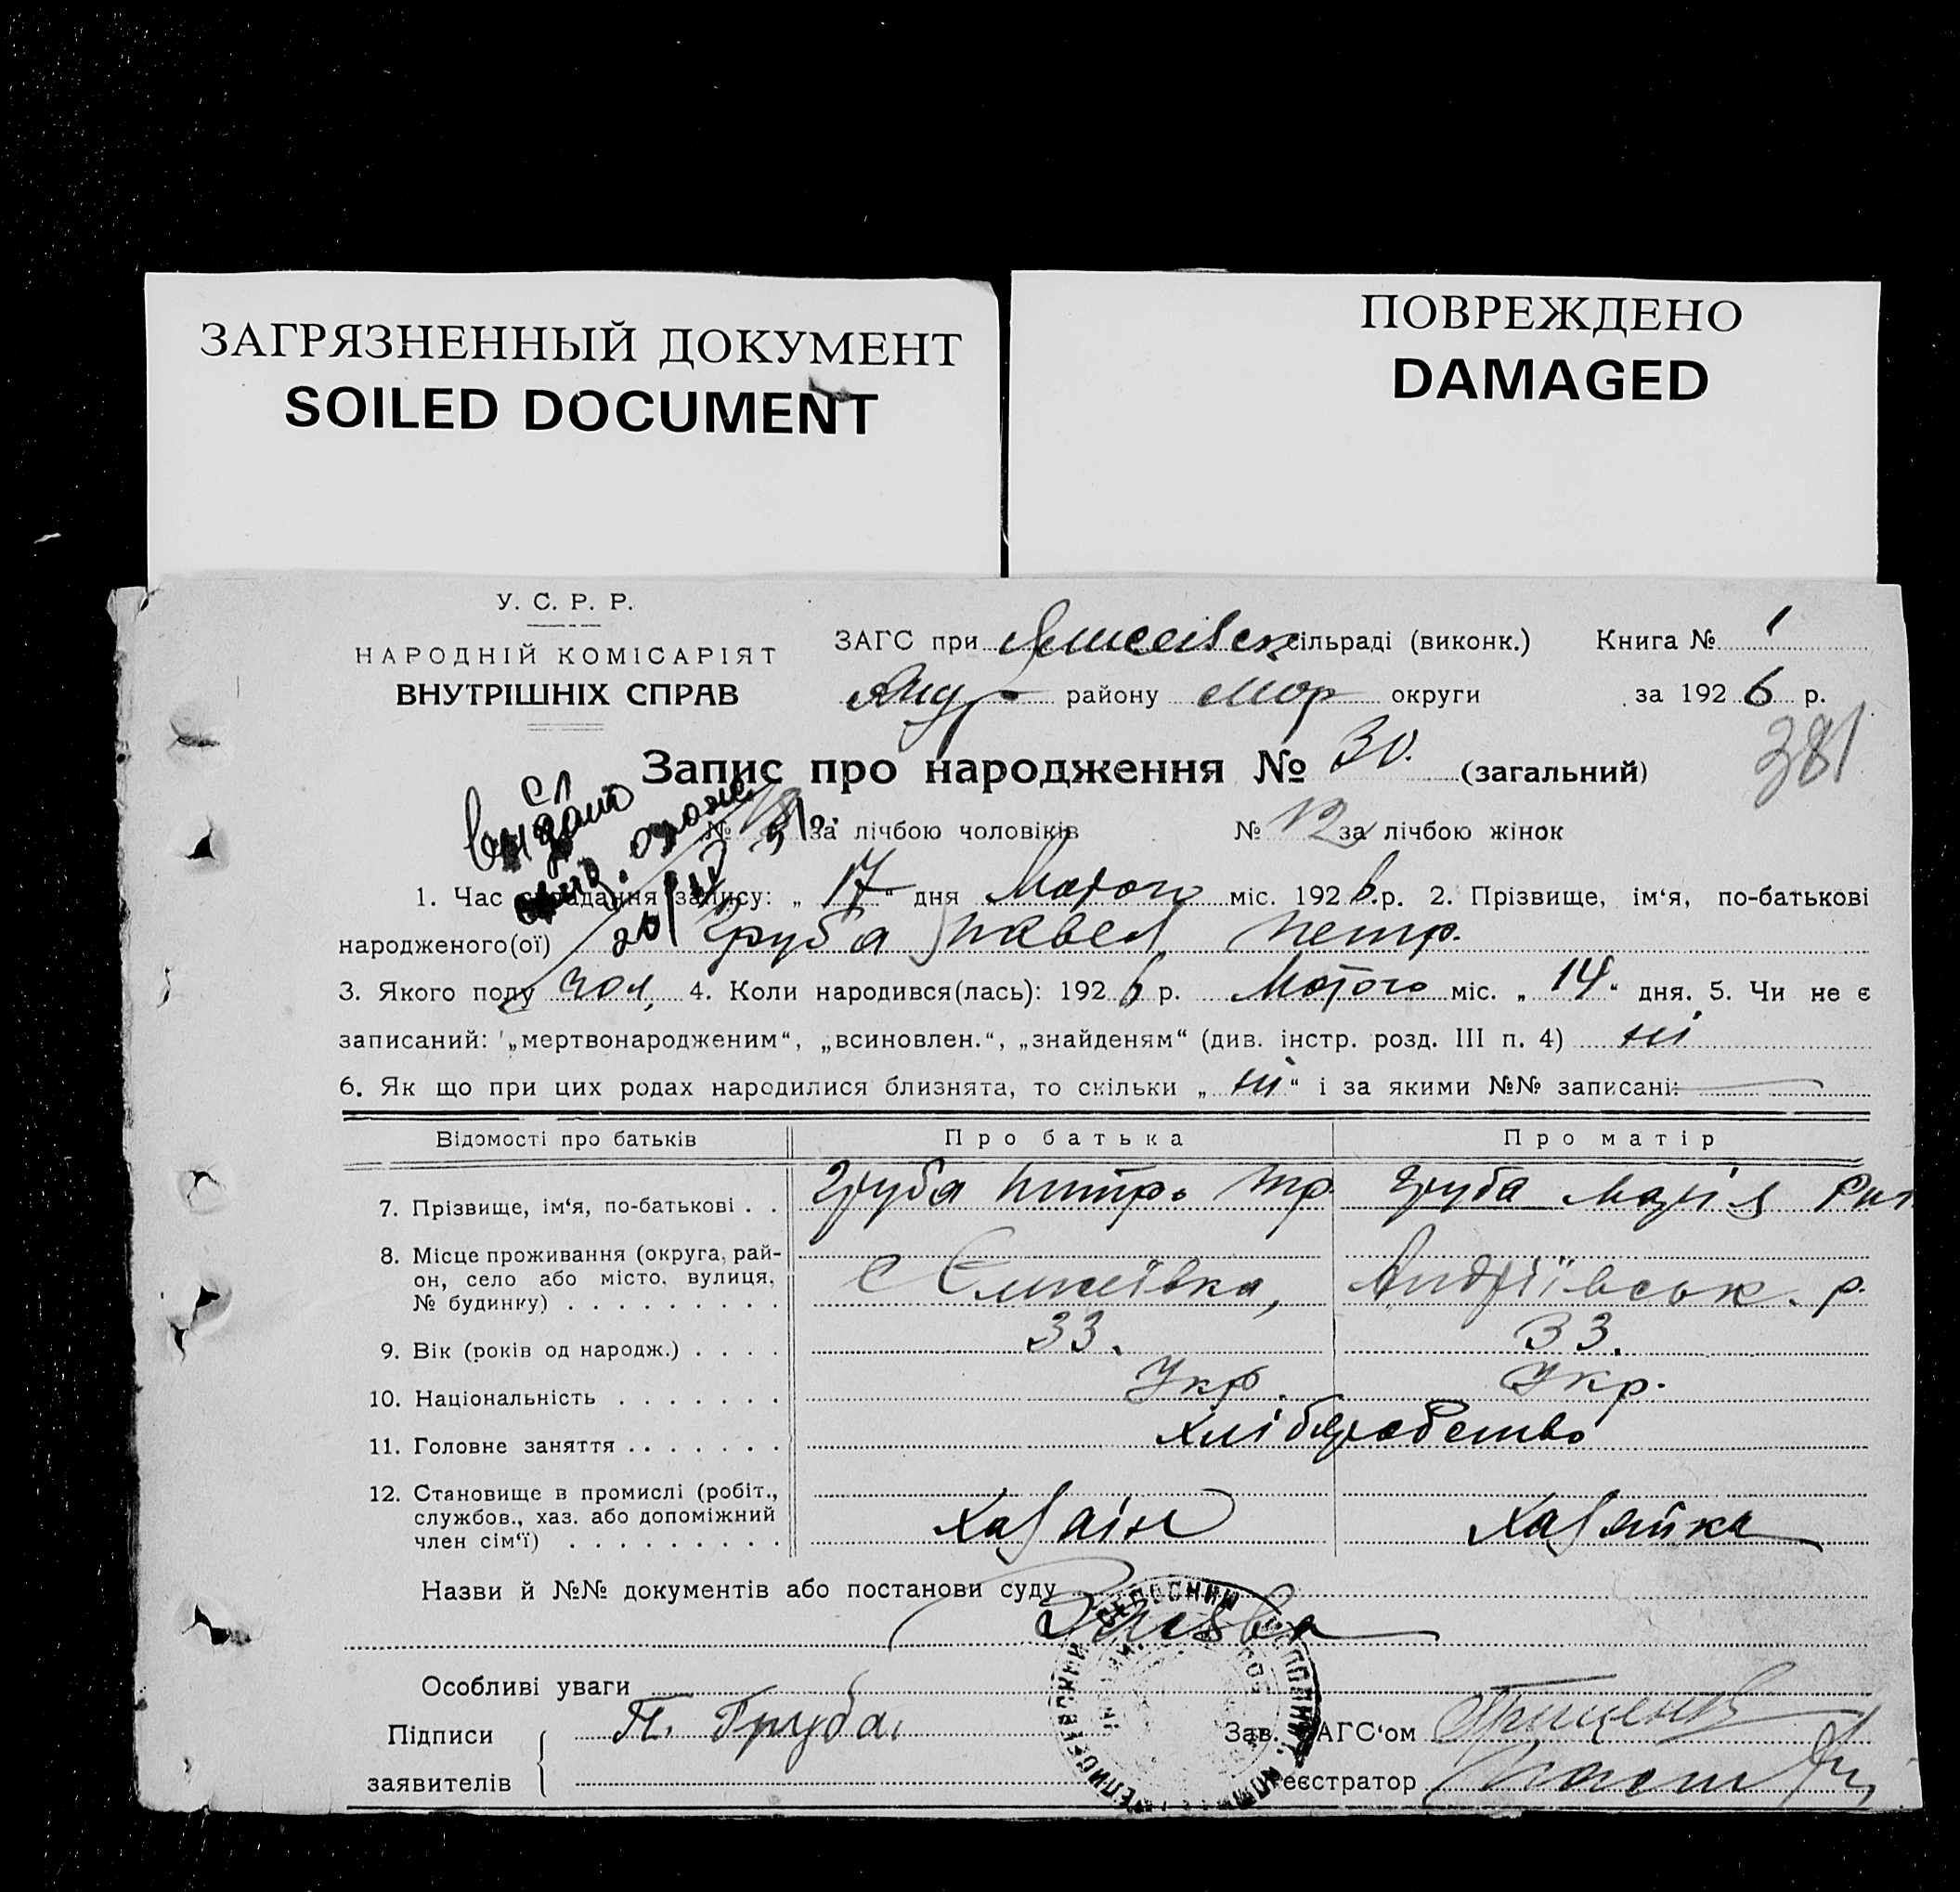 ЗАГРЯЗНЕННЫЙ ДОКУМЕНТ
SOILED DOCUMENT
ПОВРЕЖДЕНО
DAMAGED
У. С. Р. Р.
НАРОДНІЙ КОМІСАРІЯТ
ВНУТРІШНІХ СПРАВ
ЗАГС при сільраді (виконк.) Книга № 1
Андр району Мар округи за 1926 р.
381
Запис про народження № 30. (загальний)
видано
№ 18 за лічбою чоловіків № 12 за лічбою жінок
1. Час складання запису: „ 17 “ дня Лютого міс. 1926 р. 2. Прізвище, ім‘я, по-батькові
народженого(ої) Груба Павел Петр.
3. Якого полу чол, 4. Коли народився(лась): 1926 р. Лютого міс. „ 14 “ дня. 5. Чи не є
записаний: „мертвонародженим“, „всиновлен.“, „знайденям“ (див. інстр. розд. III п. 4) ні
6. Як що при цих родах народилися близнята, то скільки „ ні “ і за якими №№ записані:
Відомості про батьків Про батька Про матір
7. Прізвище, ім‘я, по-батькові . . Груба Петро Груба Марія
8. Місце проживання (округа, рай-
он, село або місто, вулиця,
№ будинку) . . . . . . . . . с Єлисеївка, Андріївськ. р.
9. Вік (років од народж.) . . . . 33. 33.
10. Національність . . . . . . . Укр. Укр.
11. Головне заняття . . . . . . . хліборобство
12. Становище в промислі (робіт.,
службов., хаз. або допоміжний
член сім‘ї) . . . . . . . . . Хазаін Хазяйка
Назви й №№ документів або постанови суду
Заява
Особливі уваги
Підписи П. Груба. Зав. ЗАГС‘ом Гриценко
заявителів Реєстратор